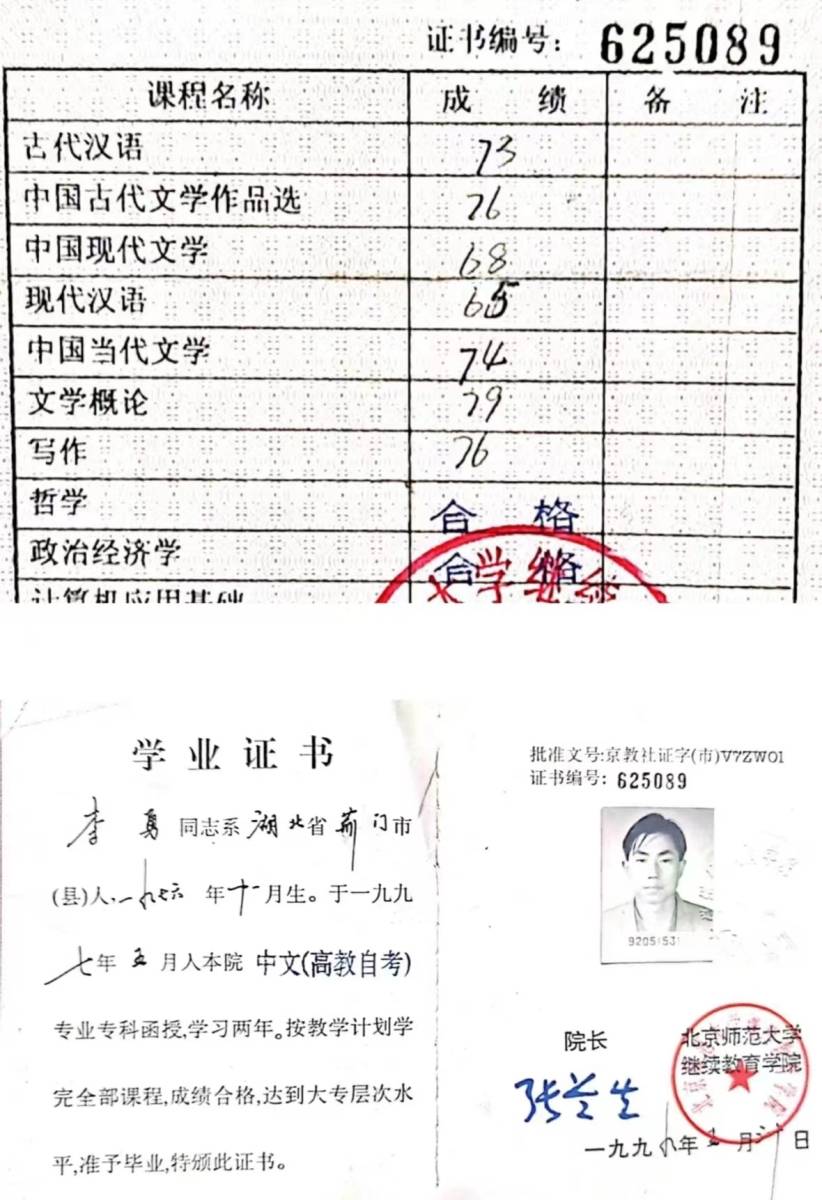 证书编号: 625089
课程名称 成绩 备注
古代汉语 73
中国古代文学作品选 76
中国现代文学 68
现代汉语 65
中国当代文学 74
文学概论 79
写作 76
哲学 合格
政治经济学 合格
计算机应用基础
大学继续
学业证书
李勇同志系湖北省荆门市
(县)人,一九七六年十一月生。于一九九
七年五月人本院 中文(高教自考)
专业专科函授,学习两年。按教学计划学
完全部课程,成绩合格,达到大专层次水
平,准予毕业,特颁此证书。
批准文号:京教社证字(市)V7ZW01
证书编号: 625089
9205153
院长
张兰生
北京师范大学
继续教育学院
一九九八年 月 日